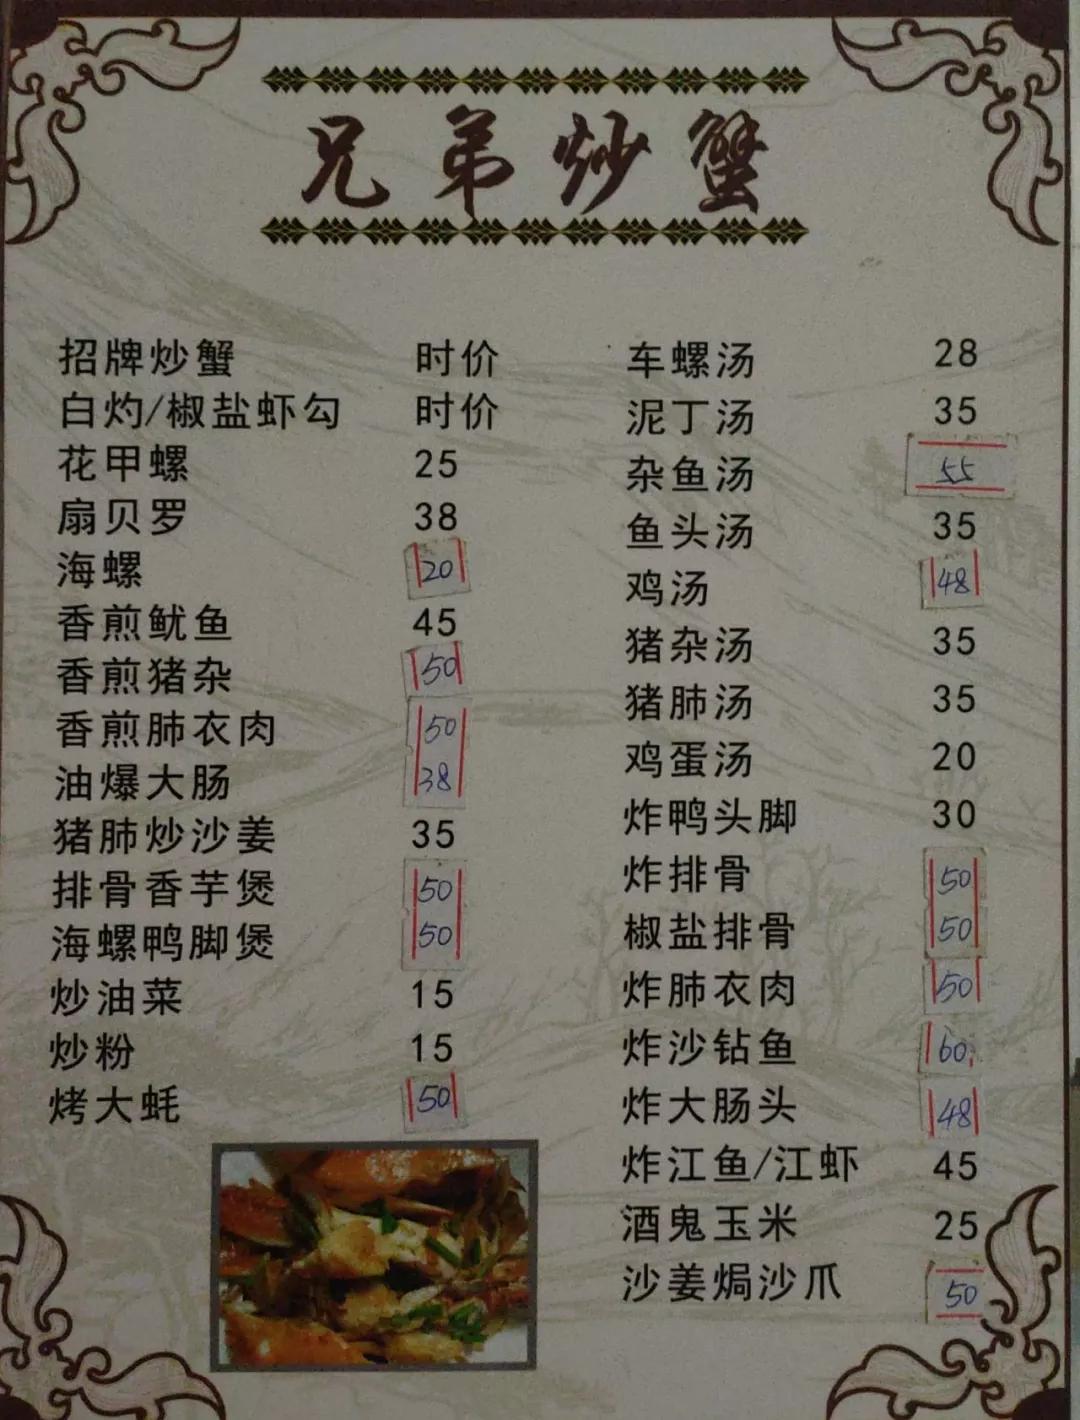 兄弟炒蟹
招牌炒蟹 时价
白灼/椒盐虾勾 时价
花甲螺 25
扇贝罗 38
海螺 20
香煎鱿鱼 45
香煎猪杂 50
香煎肺衣肉 50
油爆大肠 38
猪肺炒沙姜 35
排骨香芋煲 50
海螺鸭脚煲 50
炒油菜 15
炒粉 15
烤大蚝 50
车螺汤 28
泥丁汤 35
杂鱼汤 55
鱼头汤 35
鸡汤 48
猪杂汤 35
猪肺汤 35
鸡蛋汤 20
炸鸭头脚 30
炸排骨 50
椒盐排骨 50
炸肺衣肉 50
炸沙钻鱼 60
炸大肠头 48
炸江鱼/江虾 45
酒鬼玉米 25
沙姜焗沙爪 50